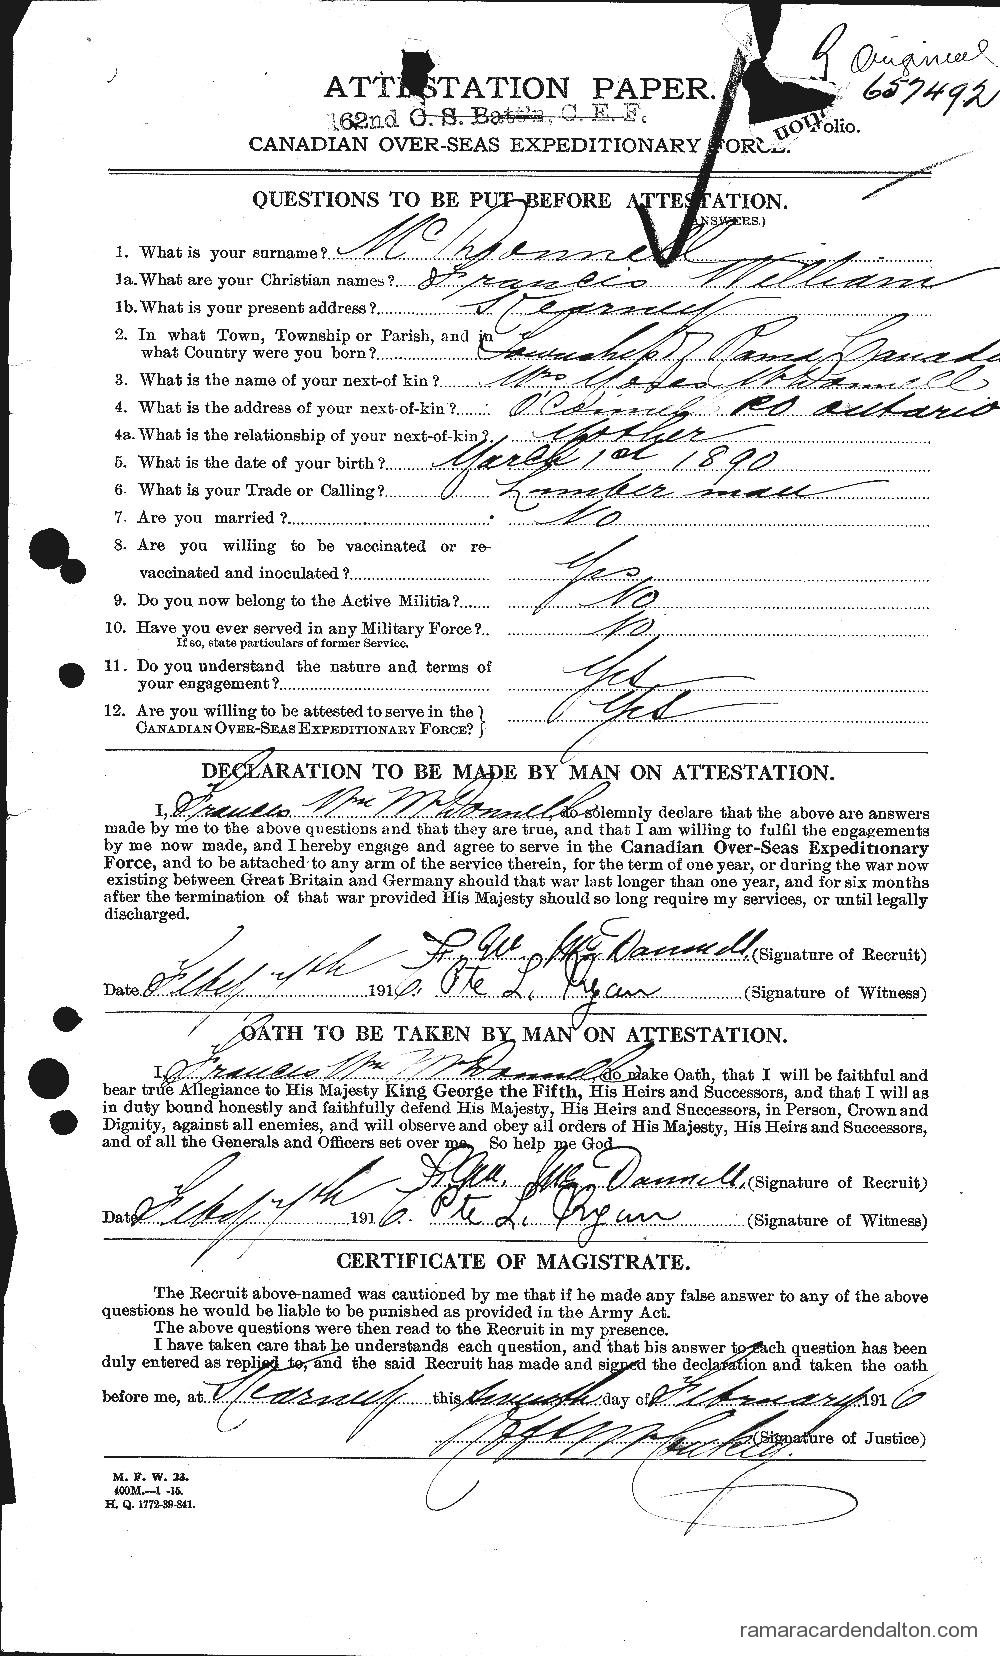 Original
657492
ATTESTATION PAPER.
162nd O. S. Batt'n, C. E. F.
Folio.
CANADIAN OVER-SEAS EXPEDITIONARY FORCE.
QUESTIONS TO BE PUT BEFORE ATTESTATION.
(ANSWERS.)
1. What is your surname? McDonnell
1a. What are your Christian names? Francis William
1b. What is your present address? Kearney
2. In what Town, Township or Parish, and in
what Country were you born? Township of Rama Canada
3. What is the name of your next-of kin? Mrs Moses McDonnell
4. What is the address of your next-of-kin? PO Ontario
4a. What is the relationship of your next-of-kin? Mother
5. What is the date of your birth? March 1st 1890
6. What is your Trade or Calling? Lumber man
7. Are you married? No
8. Are you willing to be vaccinated or re-
vaccinated and inoculated? Yes
9. Do you now belong to the Active Militia? No
10. Have you ever served in any Military Force? No
If so, state particulars of former Service.
11. Do you understand the nature and terms of
your engagement? Yes
12. Are you willing to be attested to serve in the
CANADIAN OVER-SEAS EXPEDITIONARY FORCE? Yes
DECLARATION TO BE MADE BY MAN ON ATTESTATION.
I, Francis Wm McDonnell, do solemnly declare that the above are answers
made by me to the above questions and that they are true, and that I am willing to fulfil the engagements
by me now made, and I hereby engage and agree to serve in the Canadian Over-Seas Expeditionary
Force, and to be attached to any arm of the service therein, for the term of one year, or during the war now
existing between Great Britain and Germany should that war last longer than one year, and for six months
after the termination of that war provided His Majesty should so long require my services, or until legally
discharged.
F. W. McDonnell (Signature of Recruit)
Date Feby 7th 1916. Pte L. Ryan (Signature of Witness)
OATH TO BE TAKEN BY MAN ON ATTESTATION.
I, Francis Wm McDonnell, do make Oath, that I will be faithful and
bear true Allegiance to His Majesty King George the Fifth, His Heirs and Successors, and that I will as
in duty bound honestly and faithfully defend His Majesty, His Heirs and Successors, in Person, Crown and
Dignity, against all enemies, and will observe and obey all orders of His Majesty, His Heirs and Successors,
and of all the Generals and Officers set over me. So help me God.
F. Wm. McDonnell (Signature of Recruit)
Date Feby 7th 1916. Pte L. Ryan (Signature of Witness)
CERTIFICATE OF MAGISTRATE.
The Recruit above-named was cautioned by me that if he made any false answer to any of the above
questions he would be liable to be punished as provided in the Army Act.
The above questions were then read to the Recruit in my presence.
I have taken care that he understands each question, and that his answer to each question has been
duly entered as replied to, and the said Recruit has made and signed the declaration and taken the oath
before me, at Kearney this seventh day of February 1916
(Signature of Justice)
M. F. W. 23.
400M.—1 -15.
H. Q. 1772-39-841.
ramaracardendalton.com